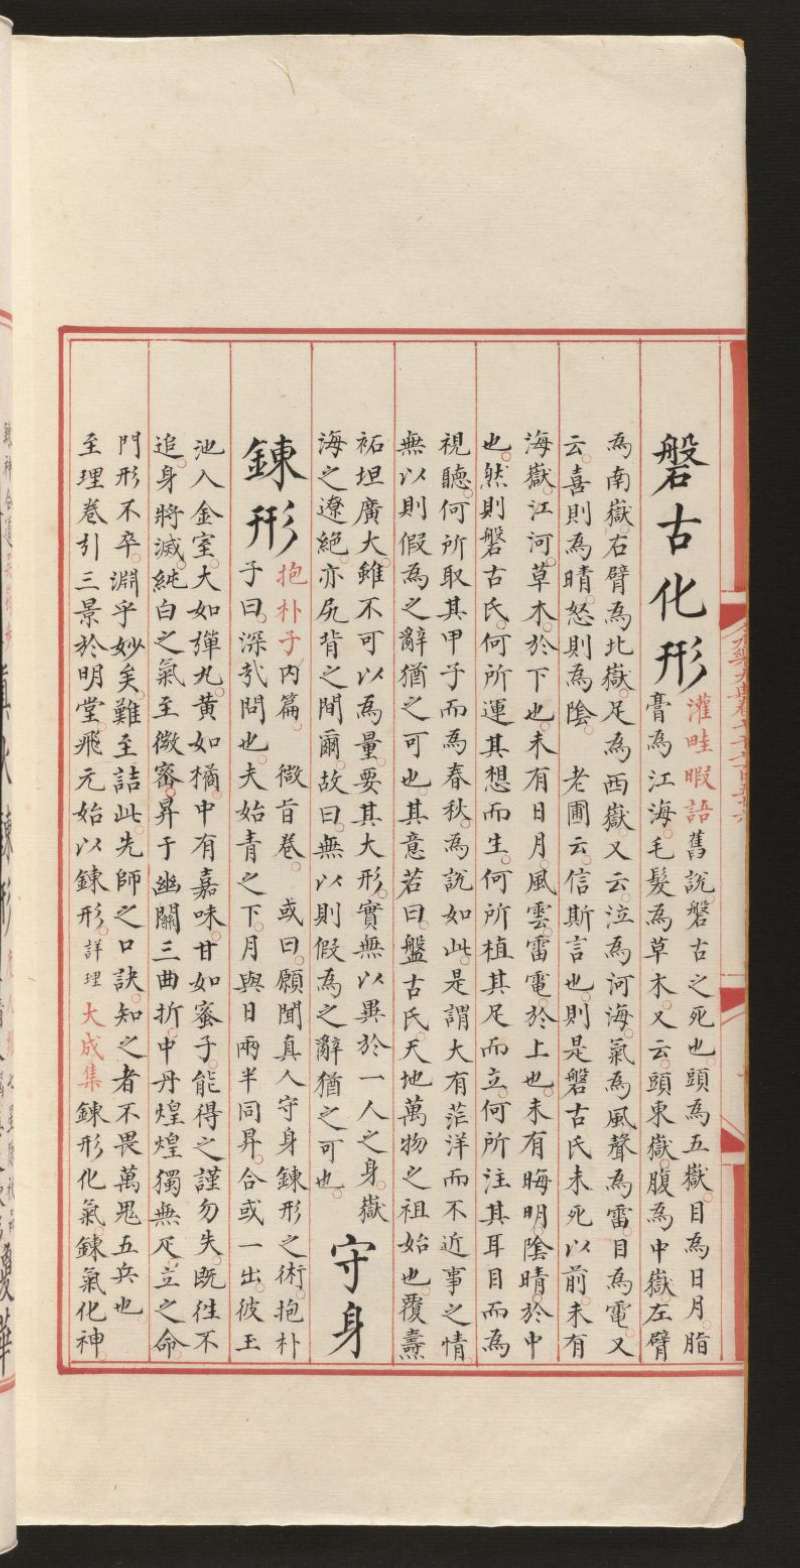 磐古化形
灌畦暇語舊說磐古之死也頭為五嶽目為日月脂
膏為江海毛髮為草木又云頭東嶽腹為中嶽左臂
為南嶽右臂為北嶽足為西嶽又云泣為河海氣為風聲為雷目為電又
云喜則為晴怒則為陰 老圃云信斯言也則是磐古氏未死以前未有
海嶽江河草木於下也未有日月風雲雷電於上也未有晦明陰晴於中
也然則磐古氏何所運其想而生何所植其足而立何所注其耳目而為
視聽何所取其甲子而為春秋為說如此是謂大有茫洋而不近事之情
無以則假為之辭猶之可也其意若曰盤古氏天地萬物之祖始也覆燾
袥坦廣大雖不可以為量要其大形實無以異於一人之身嶽
海之遼絕亦尻背之間爾故曰無以則假為之辭猶之可也
守身
鍊形
抱朴子內篇 微旨卷 或曰願聞真人守身鍊形之術抱朴
子曰深哉問也夫始青之下月與日兩半同昇合或一出彼玉
池入金室大如彈丸黃如橘中有嘉味甘如蜜子能得之謹勿失既往不
追身將滅純白之氣至微密昇于幽關三曲折中丹煌煌獨無疋立之命
門形不卒淵乎妙矣難至詰此先師之口訣知之者不畏萬鬼五兵也
至理卷引三景於明堂飛元始以鍊形詳理 大成集鍊形化氣鍊氣化神